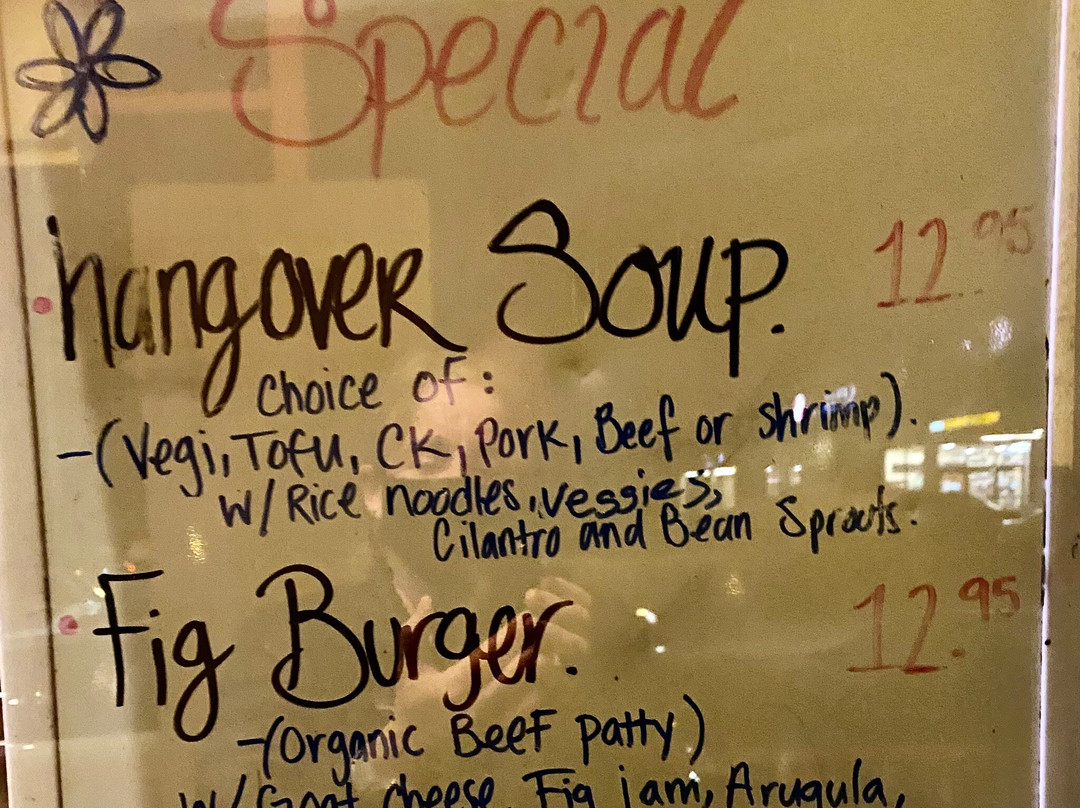 Special
hangover Soup. 12.95
choice of:
-(Vegi, Tofu, CK, Pork, Beef or shrimp).
w/ Rice noodles, veggies,
Cilantro and Bean Sprouts.
Fig Burger. 12.95
-(Organic Beef patty)
w/ Goat cheese, Fig jam, Arugula,